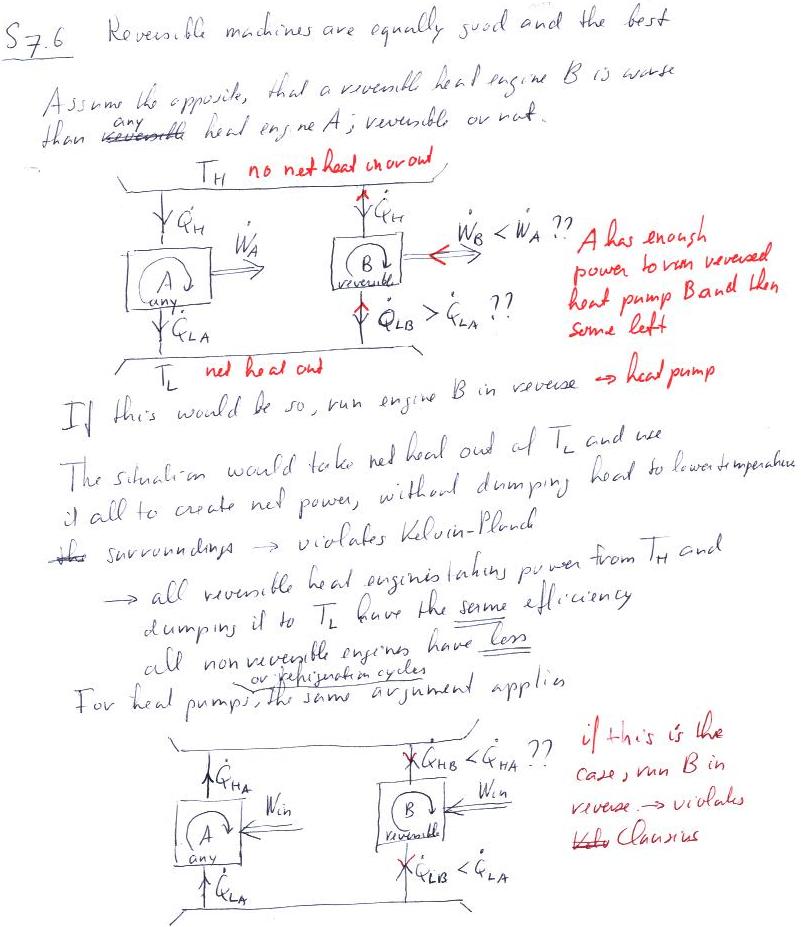 S 7.6 Reversible machines are equally good and the best
Assume the opposite, that a reversible heat engine B is worse
any
than reversible heat engine A; reversible or not.
T_H no net heat in or out
Q̇_H
Q̇_H
Ẇ_A
Ẇ_B < Ẇ_A ??
A
any
B
reversible
A has enough
power to run reversed
heat pump B and then
some left
Q̇_LA
Q̇_LB > Q̇_LA ??
T_L net heat out
If this would be so, run engine B in reverse → heat pump
The situation would take net heat out of T_L and use
it all to create net power, without dumping heat to lower temperature
the surroundings → violates Kelvin-Planck
→ all reversible heat engines taking power from T_H and
dumping it to T_L have the same efficiency
all nonreversible engines have less
or refrigeration cycles
For heat pumps, the same argument applies
Q̇_HA
Q̇_HB < Q̇_HA ??
Ẇ_in
Ẇ_in
A
any
B
reversible
Q̇_LA
Q̇_LB < Q̇_LA
if this is the
case, run B in
reverse → violates
Kelv Clausius